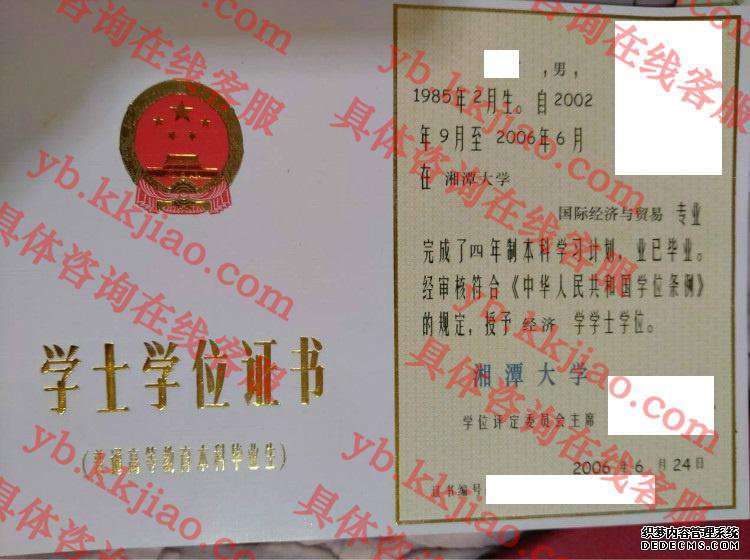 学士学位证书
(普通高等教育本科毕业生)
，男，
1985年2月生。自2002
年9月至2006年6月
在 湘潭大学
国际经济与贸易 专业
完成了四年制本科学习计划，业已毕业。
经审核符合《中华人民共和国学位条例》
的规定，授予 经济 学学士学位。
湘潭大学
学位评定委员会主席
2006年6月24日
证书编号:
具体咨询在线客服
yb.kkjiao.com
具体咨询在线客服
yb.kkjiao.com
具体咨询在线客服
yb.kkjiao.com
具体咨询在线客服
yb.kkjiao.com
具体咨询在线客服
yb.kkjiao.com
具体咨询在线客服
织梦内容管理系统
DEDECMS.COM